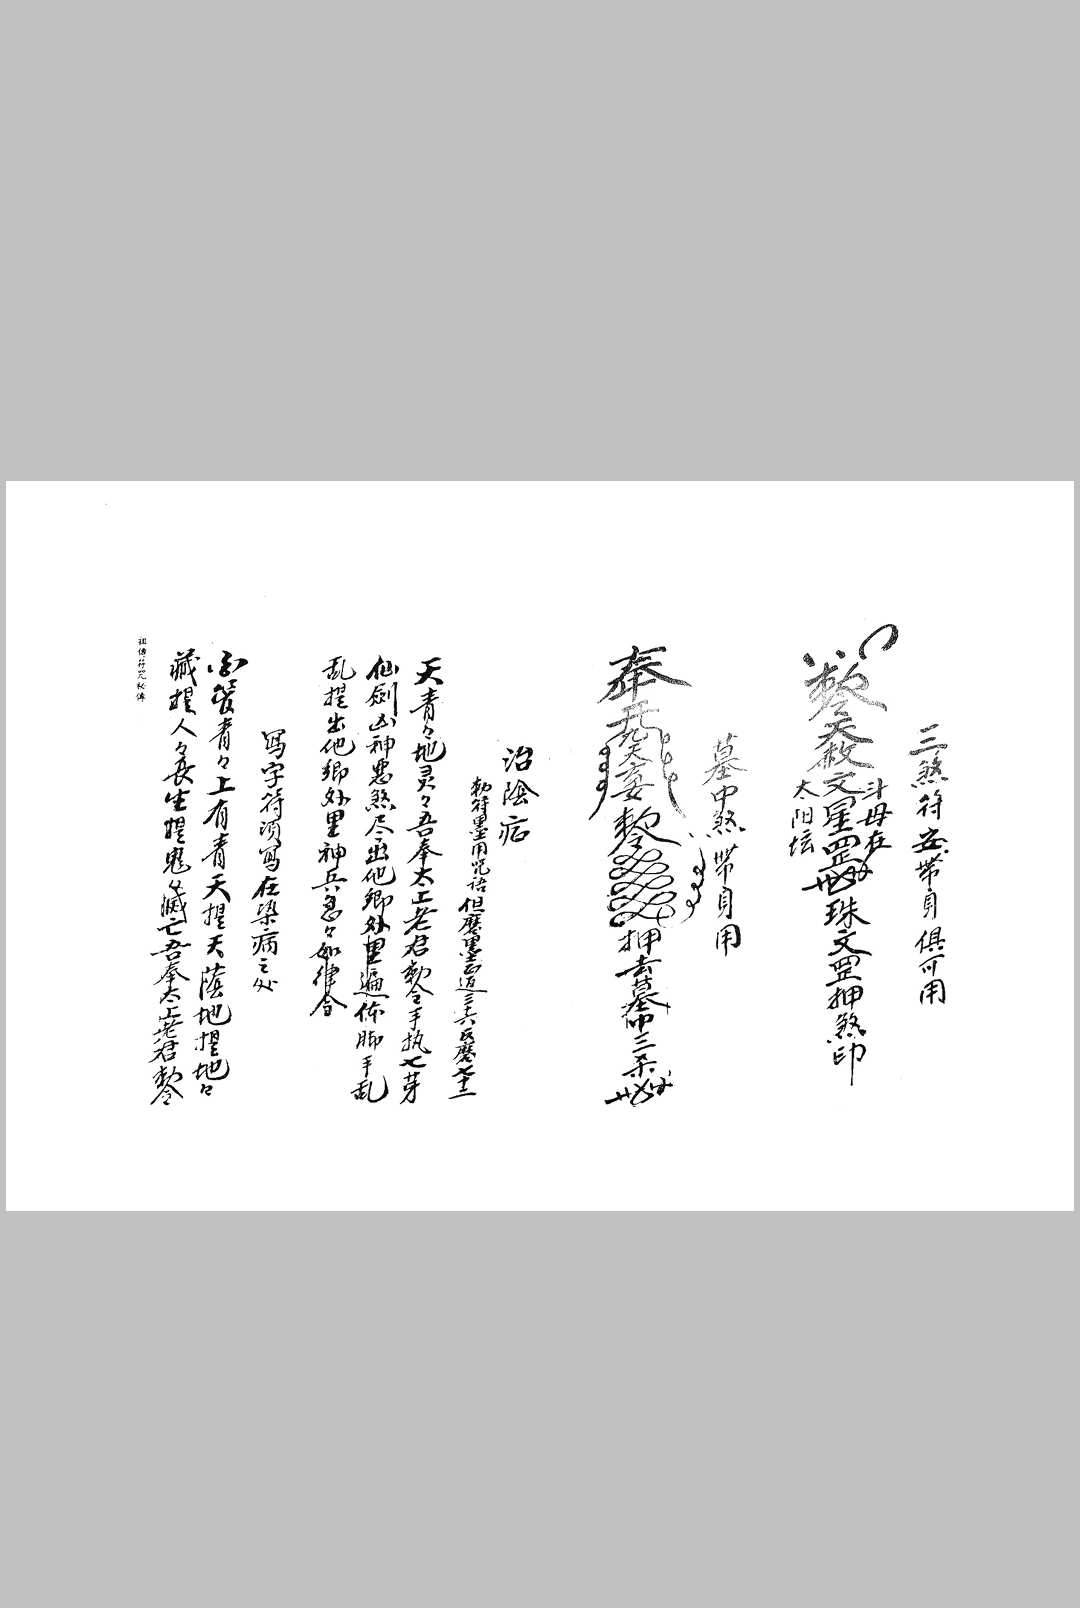 三煞符安带身俱可用
敕令天赦文星罡
斗母在
太阳坛
珠文罡押煞印
墓中煞带身用
奉九天玄
敕令
押去墓中三杀
治陰症
勅符墨用咒语但磨墨
天青々地灵々吾奉太上老君敕令手执七芽
仙劍凶神恶煞尽出他鄉外里遍体脚手乱
乱提出他鄉外里神兵急々如律令
写字符须写在染病之处
青々上有青天提天蔭地提地々
藏提人々長生提鬼々滅亡吾奉太上老君敕令
祖傳符咒秘傳